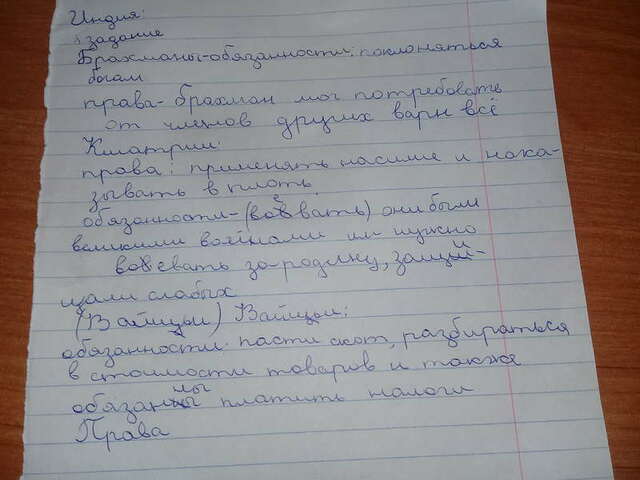 Индия:
задание
Брахманы-обязанности: поклоняться
богам
права- брахман мог потребовать
от членов других варн всё
Кшатрии:
права: применять насилие и нака-
зывать в плоть
обязанности-(воевать) они были
великими войнами им нужно
воевать за родину, защи-
щали слабых
(Вайшьи) Вайшьи:
обязанности: пасти скот, разбираться
в стоимости товаров и также
обязаны платить налоги
Права